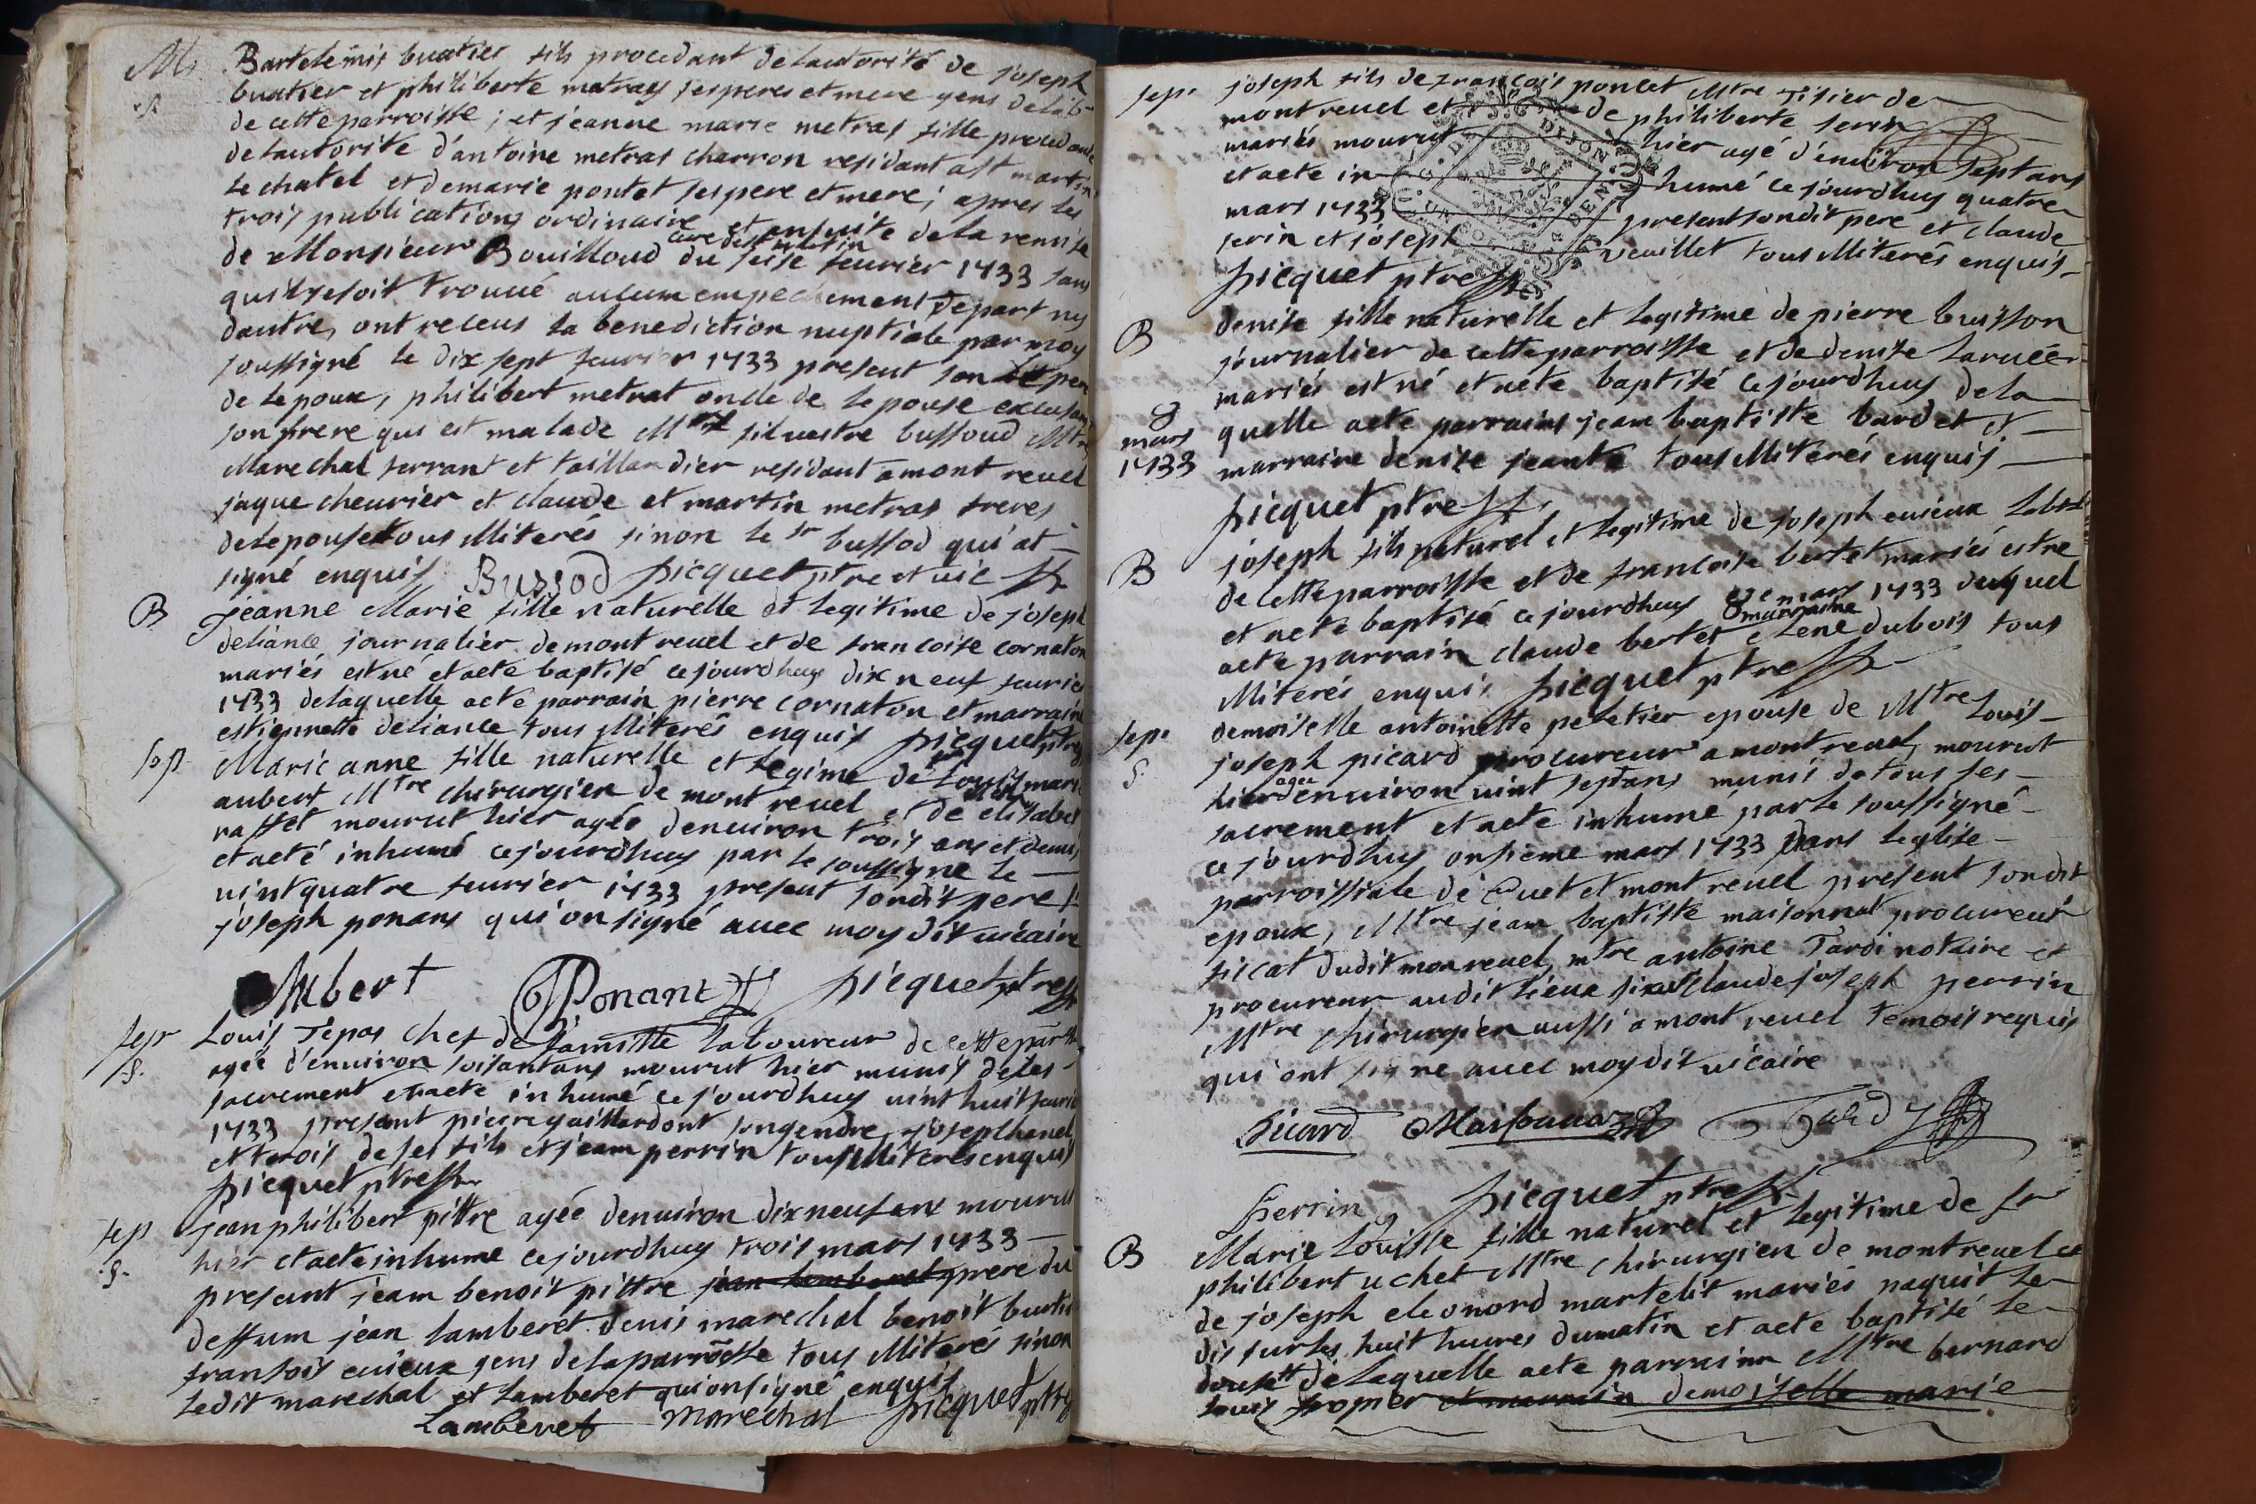 M.
Bartelemis buatier fils procedant de lautorité de joseph
buatier et philiberte matray ses peres et mere gens de lab
de cette parroisse ; et jeanne marie metras fille procedante
de lautorité d'antoine metras charron residant a st martin
le chatel et de marie pontet ses pere et mere ; apres les
trois publications ordinaire et ensuite de la remise
de Monsieur Bouilloud curé de st martin du seise feurier 1733 sans
quil se soit trouué aucum empechement depart ny
dautre, ont receus la benediction nuptiale par moy
soussigné le dix sept feurier 1733 present son dit pere
de lepoux, philibert metrat oncle de lepouse excusant
son frere qui est malade Mtre siluestre bussoud Mtre
Marechal ferrant et taillandier residant a mont reuel
jaque cheurier et claude et martin metras freres
de lepouse tous Miterés sinon le sr bussod qui at
signé enquis Bussod picquet ptre et uic
B
jeanne Marie fille naturelle et legitime de joseph
deliance journalier de mont reuel et de francoise cornaton
mariés est né et acte baptisé ce jourdhuy dix neuf feurier
1733 de laquelle acté parrain pierre cornaton et marraine
estiennette deliance tous Miterés enquis picquet ptre
sep.
Marie anne fille naturelle et legime de Louis marie
aubert Mtre chirurgien de mont reuel et de elisabet
raffet mourut hier agée denuiron trois ans et demis
et acté inhumé ce jourdhuy par le soussigne le
uint quatre feurier 1733 present son dit pere sr
joseph ponans qui on signé auec moy dit uicaire
Aubert Ponant picquet ptre
sepr
s.
Louis Tépas chef de famille laboureur de cette parsse
agée d'enuiron soisantans mourut hier munis de les
sacrement et acte inhumé ce jourdhuy uint huit feurier
1733 present pierre gaillardont son gendre, joseph
et trois de ses fils et jean perrin tous Miteres enquis
picquet ptre
sep
s.
jean philibert pittre agée denuiron dix neuf ans mourut
hier et acte inhume ce jourdhuy trois mars 1733
present jeam benoit pittre jean lamberet pere du
deffum jean lamberet denis marechal benoit buatier
fransois euieux gens de la parroisse tous Miteres sinon
le dit marechal et lamberet qui on signé enquis
Lamberet Marechal picquet ptre
sepr
joseph fils de francois poncet Mtre Tisier de
mont reuel et de philiberte serin
mariés mourut hier agé d'enuiron sept ans
et acte in humé ce jourdhuy quatre
mars 1733 present son dit pere et claude
serin et joseph ueuillet tous Miterés enquis
picquet ptre
B
8
mars
1733
denise fille naturelle et legitime de pierre buisson
journalier de cette parroisse et de denise laruée
mariés est né et acte baptisé ce jourdhuy de la
quelle acte parrains jean baptiste bardet et
marraine denise jeante tous Miterés enquis
picquet ptre
B
joseph fils naturel et legitime de joseph euieux labr
de cette parroisse et de francoise bertet mariés est né
et acte baptisé ce jourdhuy mars 1733 duquel
acte parrain claude bertet marraine elene dubois tous
Miterés enquis picquet ptre
sepr
s
demoiselle antoinette peletier epouse de Mtre Louis
joseph picard procureur a mont reuel, mourut
hier agee denuiron uint sept ans munis de tous ses
sacrement et acte inhumé par le soussigné
ce jourdhuy onsieme mars 1733 dans leglise
parroissiale de Cuet et mont reuel present son dit
epoux, Mtre jean baptiste maisonnat procureur
fiscat dudit mon reuel, mtre antoine Tardi notaire et
procureur audit lieux sieur claude joseph perrin
Mtre chirurgien aussi a mont reuel temois requis
qui ont signe auec moy dit uicaire
Picard Maisonnaz Tardy
Perrin picquet ptre
B
Marie Louisse fille naturel et legitime de sr
philibert uchet Mtre chirurgien de mont reuel et
de joseph eleonord martelit mariés naquit le
dis sur les huit heures dumatin et acte baptisé le
douse de laquelle acte parrainn Mtre bernard
Louis fropier et marrain demoiselle marie